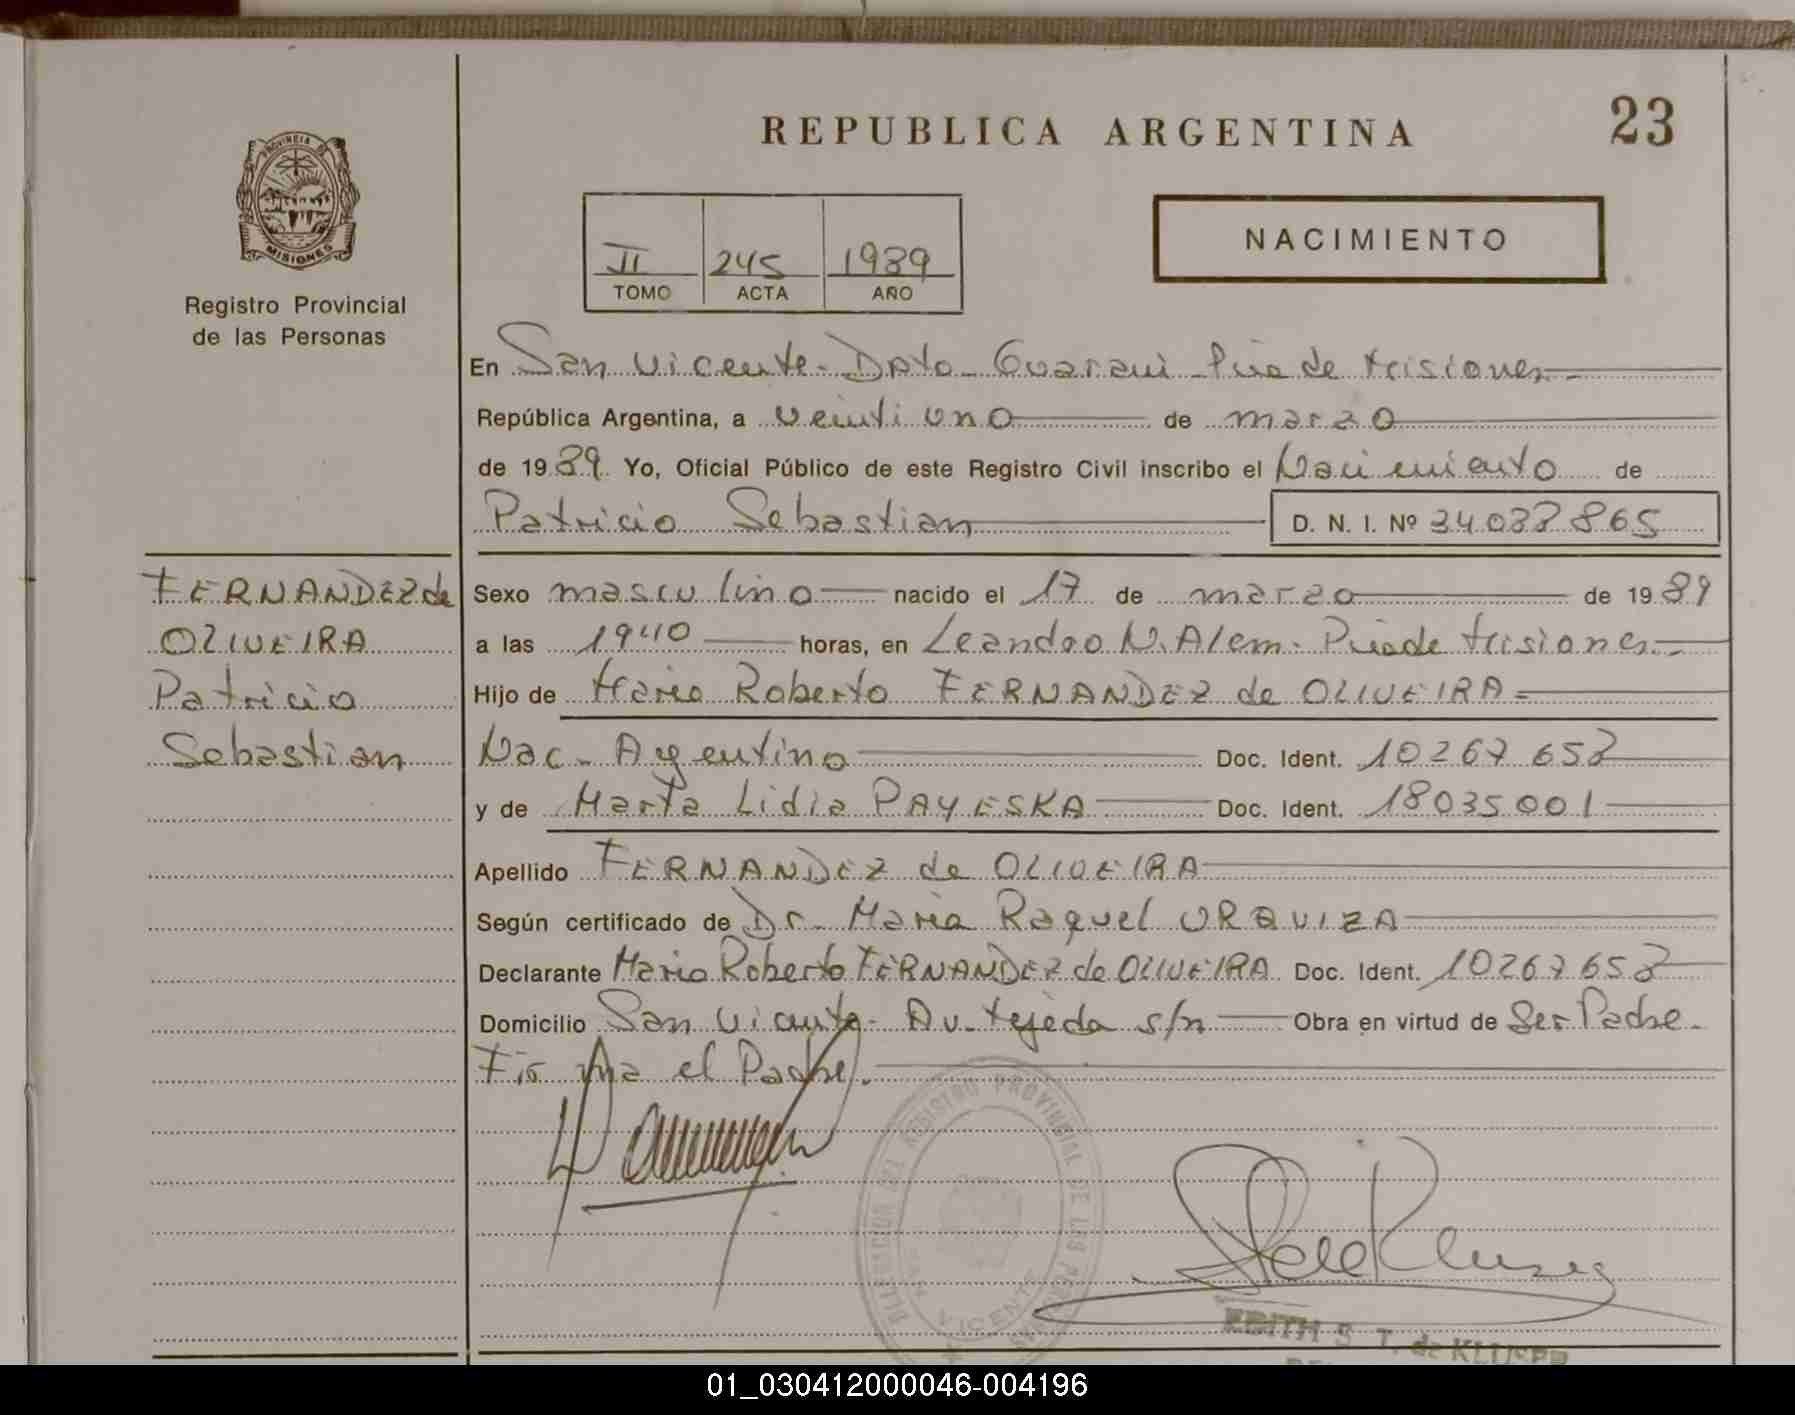 REPUBLICA ARGENTINA
23
PROVINCIA DE
MISIONES
Registro Provincial
de las Personas
II 245 1989
TOMO ACTA AÑO
NACIMIENTO
En San Vicente - Dpto - Guarani - Pcia de Misiones
República Argentina, a veinti uno de marzo
de 1989. Yo, Oficial Público de este Registro Civil inscribo el Nacimiento de
Patricio Sebastian D. N. I. Nº 34033865
FERNANDEZ de
OLIVEIRA
Patricio
Sebastian
Sexo masculino nacido el 17 de marzo de 1989
a las 1940 horas, en Leandro N. Alem - Pciade Misiones
Hijo de Mario Roberto FERNANDEZ de OLIVEIRA
Nac - Argentino Doc. Ident. 10267653
y de Marta Lidia PAYESKA Doc. Ident. 18035001
Apellido FERNANDEZ de OLIVEIRA
Según certificado de Dr. Maria Raquel URQUIZA
Declarante Mario Roberto FERNANDEZ de OLIVEIRA Doc. Ident. 10267653
Domicilio San Vicente - Av. Tejeda s/n Obra en virtud de Ser Padre -
Firma el Padre.
DELEGACION DEL REGISTRO PROVINCIAL DE LAS PERSONAS
SAN VICENTE
EDITH S. T. de KLUSER
01_030412000046-004196